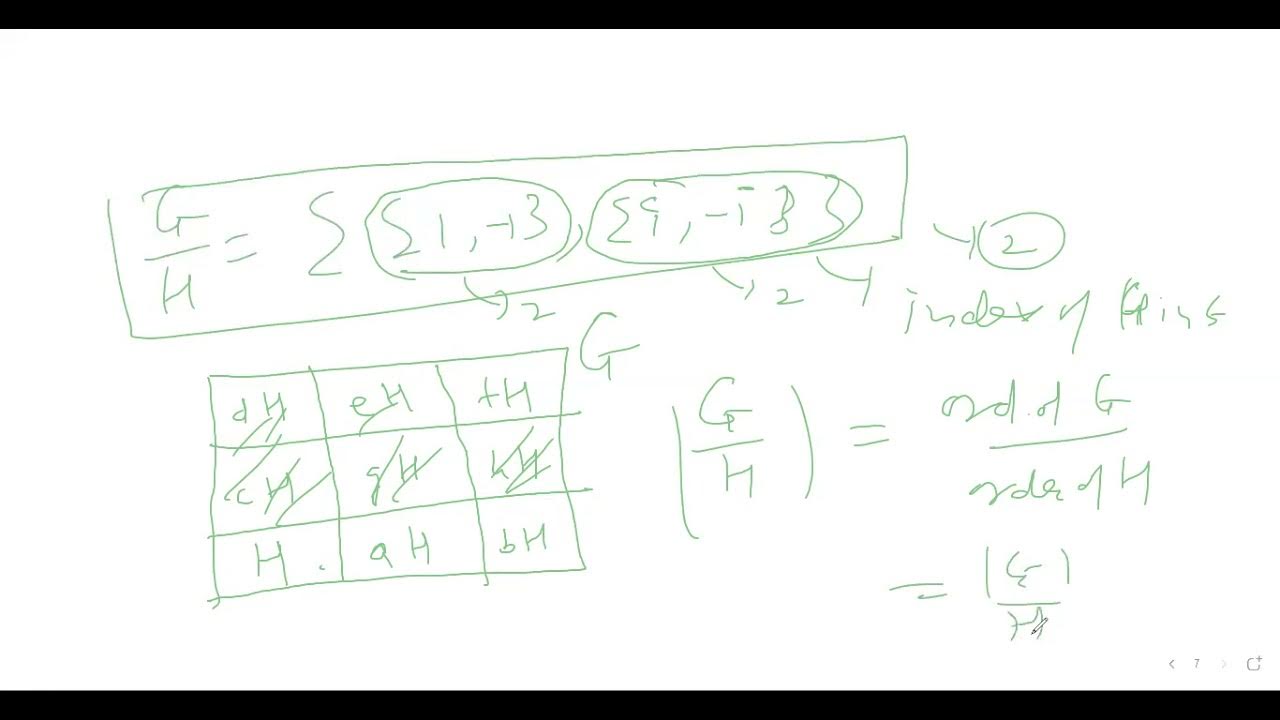 G/H = { {1, -1}, {i, -i} } → 2
→ 2 → 2
index of H in G
G
dH eH fH
cH gH hH
H . aH bH
|G/H| = ord. of G / order of H
= |G| / H
7